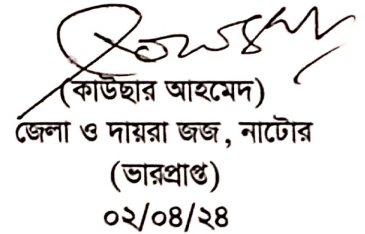 (কাউছার আহমেদ)
জেলা ও দায়রা জজ, নাটোর
(ভারপ্রাপ্ত)
০২/০৪/২৪